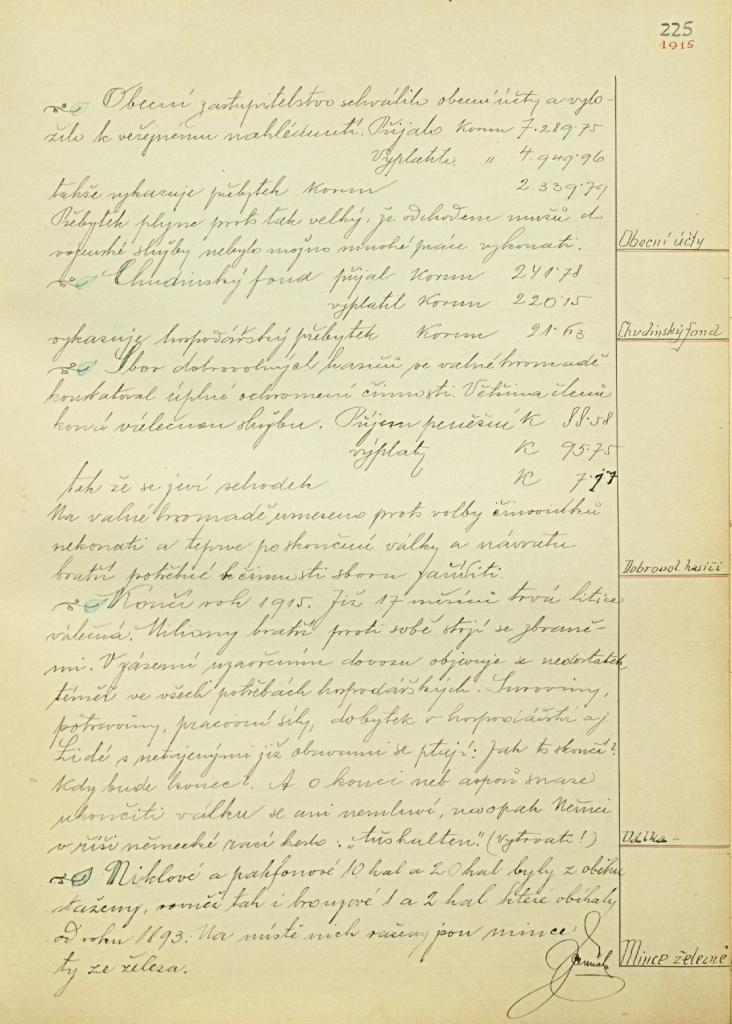 225
1915
Obecní zastupitelstvo schválilo obecní účty a vylo-
žilo k veřejnému nahlédnutí. Přijalo Korun 7.289.75
Vyplatilo " 4.949.96
takže vykazuje přebytek Korun 2.339.79
Přebytek plyne proto tak velký, že odchodem mužů do
vojenské služby nebylo možno mnohé práce vykonati.
Obecní účty
Chudinský fond přijal Korun 241.78
vyplatil Korun 220.15
vykazuje hospodářský přebytek Korun 21.63
Chudinský fond
Sbor dobrovolných hasičů ve valné hromadě
konstatoval úplné ochromení činnosti. Většina členů
koná válečnou službu. Příjem peněžní K 88.58
výplaty K 95.75
tak že se jeví schodek K 7.17
Na valné hromadě usneseno proto volby činovníků
nekonati a teprve po skončení války a návratu
bratří potřebné k činnosti sboru zaříditi.
Dobrovol. hasiči
Končí rok 1915. Již 17 měsíců trvá litice
válečná. Miliony bratří proti sobě stojí se zbraně-
mi. V zázemí uzavřením dovozu objevuje se nedostatek
téměř ve všech potřebách hospodářských. Suroviny,
potraviny, pracovní síly, dobytek v hospodářství aj.
Lidé s netajenými již obavami se ptají: Jak to skončí?
Kdy bude konec? A o konci neb aspoň snaze
ukončiti válku se ani nemluví, naopak Němci
v říši německé razí heslo: „ (vytrvati!)
Válka -
Niklové a pakfonové 10 hal a 20 hal byly z oběhu
staženy, rovněž tak i bronzové 1 a 2 hal které obíhaly
od roku 1893. Na místě nich raženy jsou mince
ty ze železa.
Mince železné